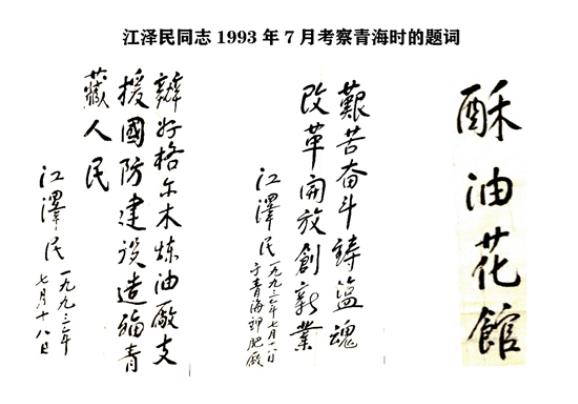 江泽民同志1993年7月考察青海时的题词
酥油花館
艱苦奋斗鋳盐魂
改革開放創新業
江澤民 一九九三年七月十八日
于青海钾肥厰
辦好格尔木炼油厰支
援國防建设造福青
藏人民
江澤民 一九九三年
七月十八日